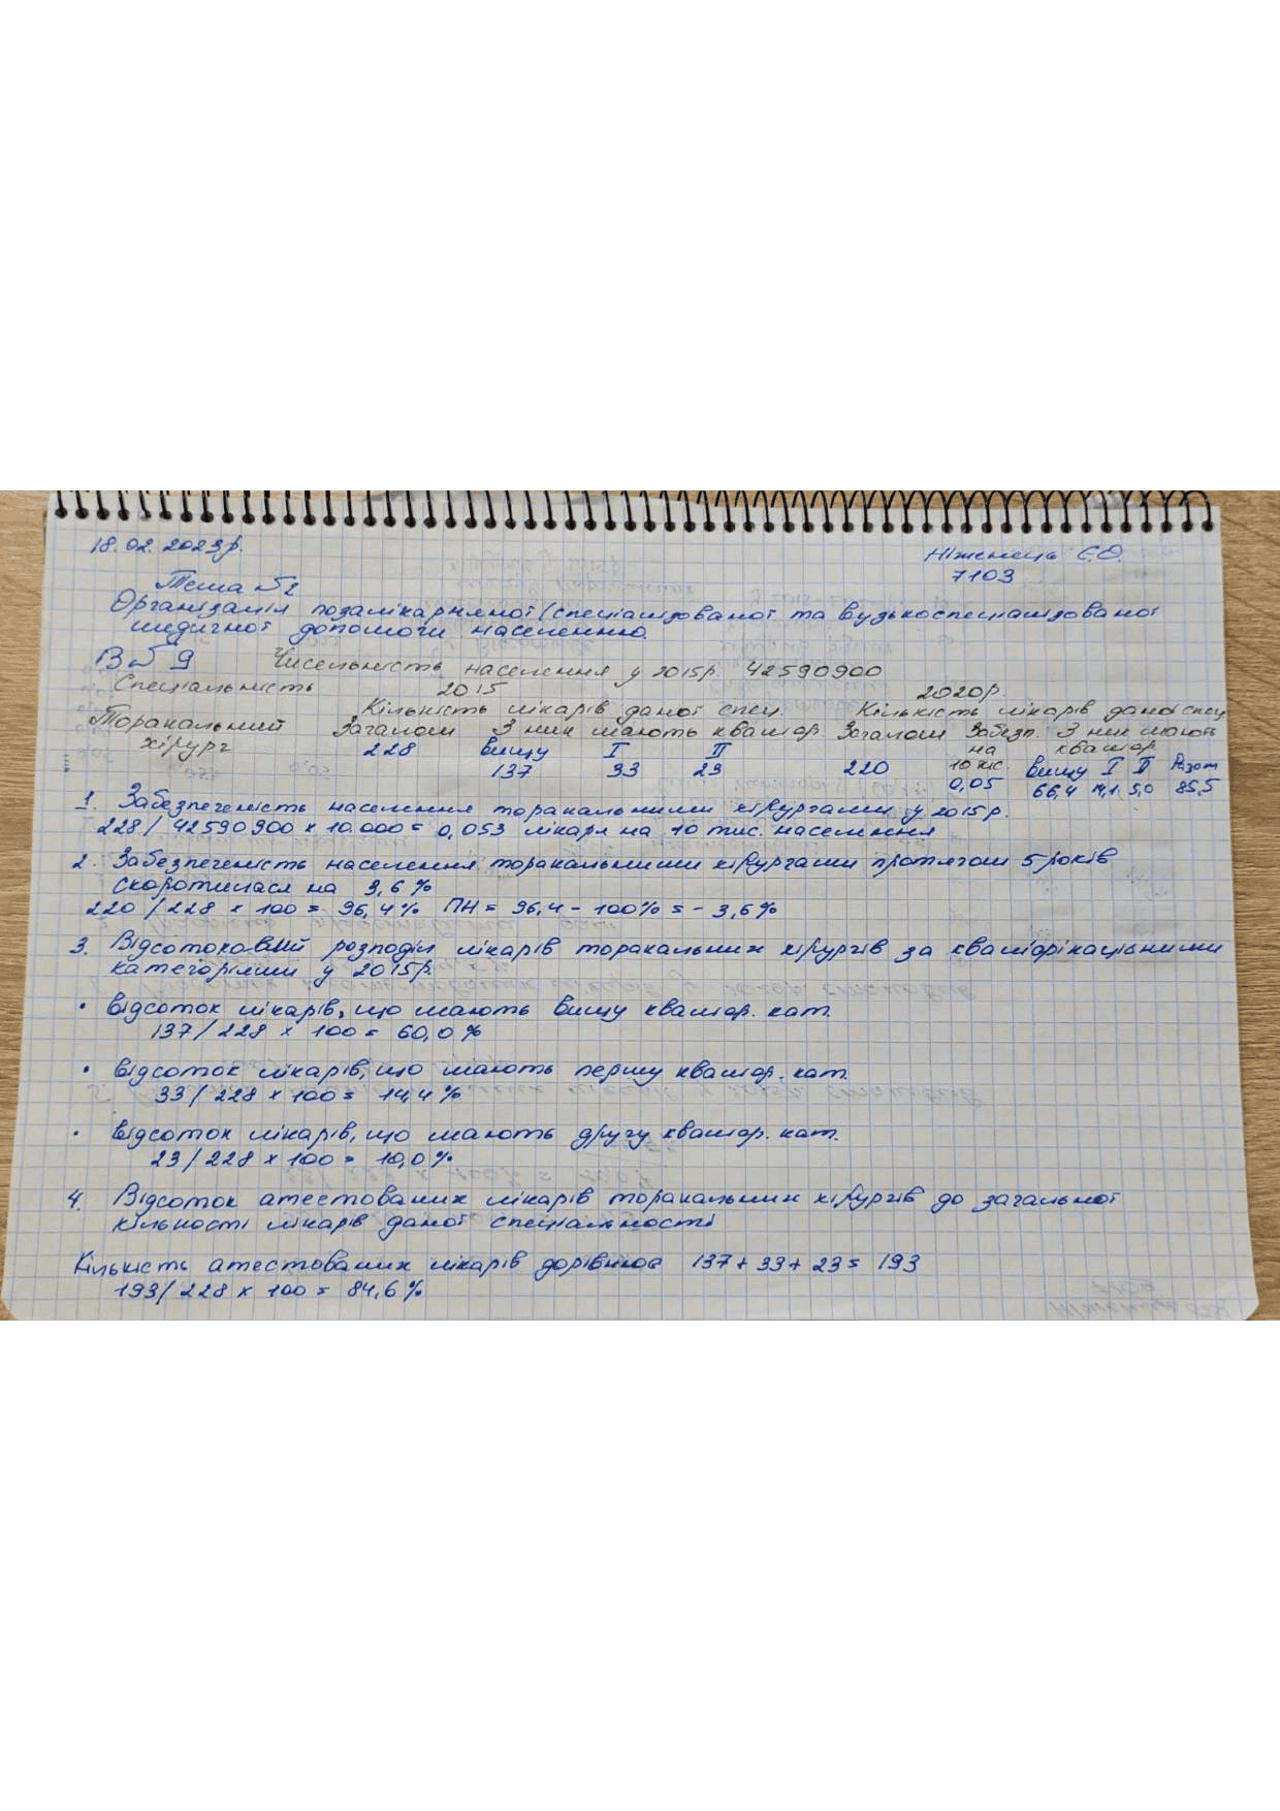 18.02.2023р.
Ніженець Є.О.
7103
Тема №2
Організація позалікарняної (спеціалізованої та вузькоспеціалізованої
медичної допомоги населенню.
В№9 Чисельність населення у 2015р. 42590900
Спеціальність 2015 2020р.
Кількість лікарів даної спец. Кількість лікарів даної спец
Торакальний Загалом З них мають кваліф. Загалом Забезп. З них мають
хірург 228 вищу I II на кваліф.
137 33 23 220 10 тис. вищу I II Разом
0,05 66,4 14,1 5,0 85,5
1. Забезпеченість населення торакальними хірургами у 2015р.
228/ 42590900 х 10.000 = 0,053 лікаря на 10 тис. населення
2. Забезпеченість населення торакальними хірургами протягом 5 років
скоротилася на 3,6%
220/228 х 100 = 96,4% ПН = 96,4 - 100% = - 3,6%
3. Відсотковий розподіл лікарів торакальних хірургів за кваліфікаційними
категоріями у 2015р.
• Відсоток лікарів, що мають вищу кваліф. кат.
137/228 х 100 = 60,0%
• Відсоток лікарів, що мають першу кваліф. кат.
33/228 х 100 = 14,4%
• Відсоток лікарів, що мають другу кваліф. кат.
23/228 х 100 = 10,0%
4. Відсоток атестованих лікарів торакальних хірургів до загальної
кількості лікарів даної спеціальності
Кількість атестованих лікарів дорівнює 137 + 33 + 23 = 193
193/228 х 100 = 84,6%